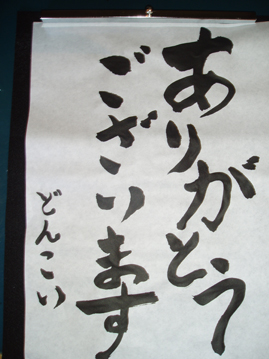 ありがとう
ございます
どんこい